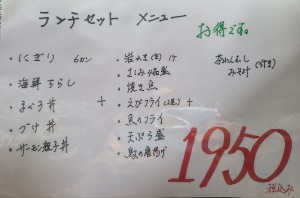 ランチセット メニュー
お得です。
・にぎり 6カン
・海鮮ちらし
・まぐろ丼
・づけ丼
・サーモン親子丼
+
・岩がき(生) 1ケ
・さしみ小盛
・焼き魚
・エビフライ(2尾)
・魚のフライ
・天ぷら盛
・魚の唐揚げ
+
茶わんむし
みそ汁 (付き)
1950
税込み